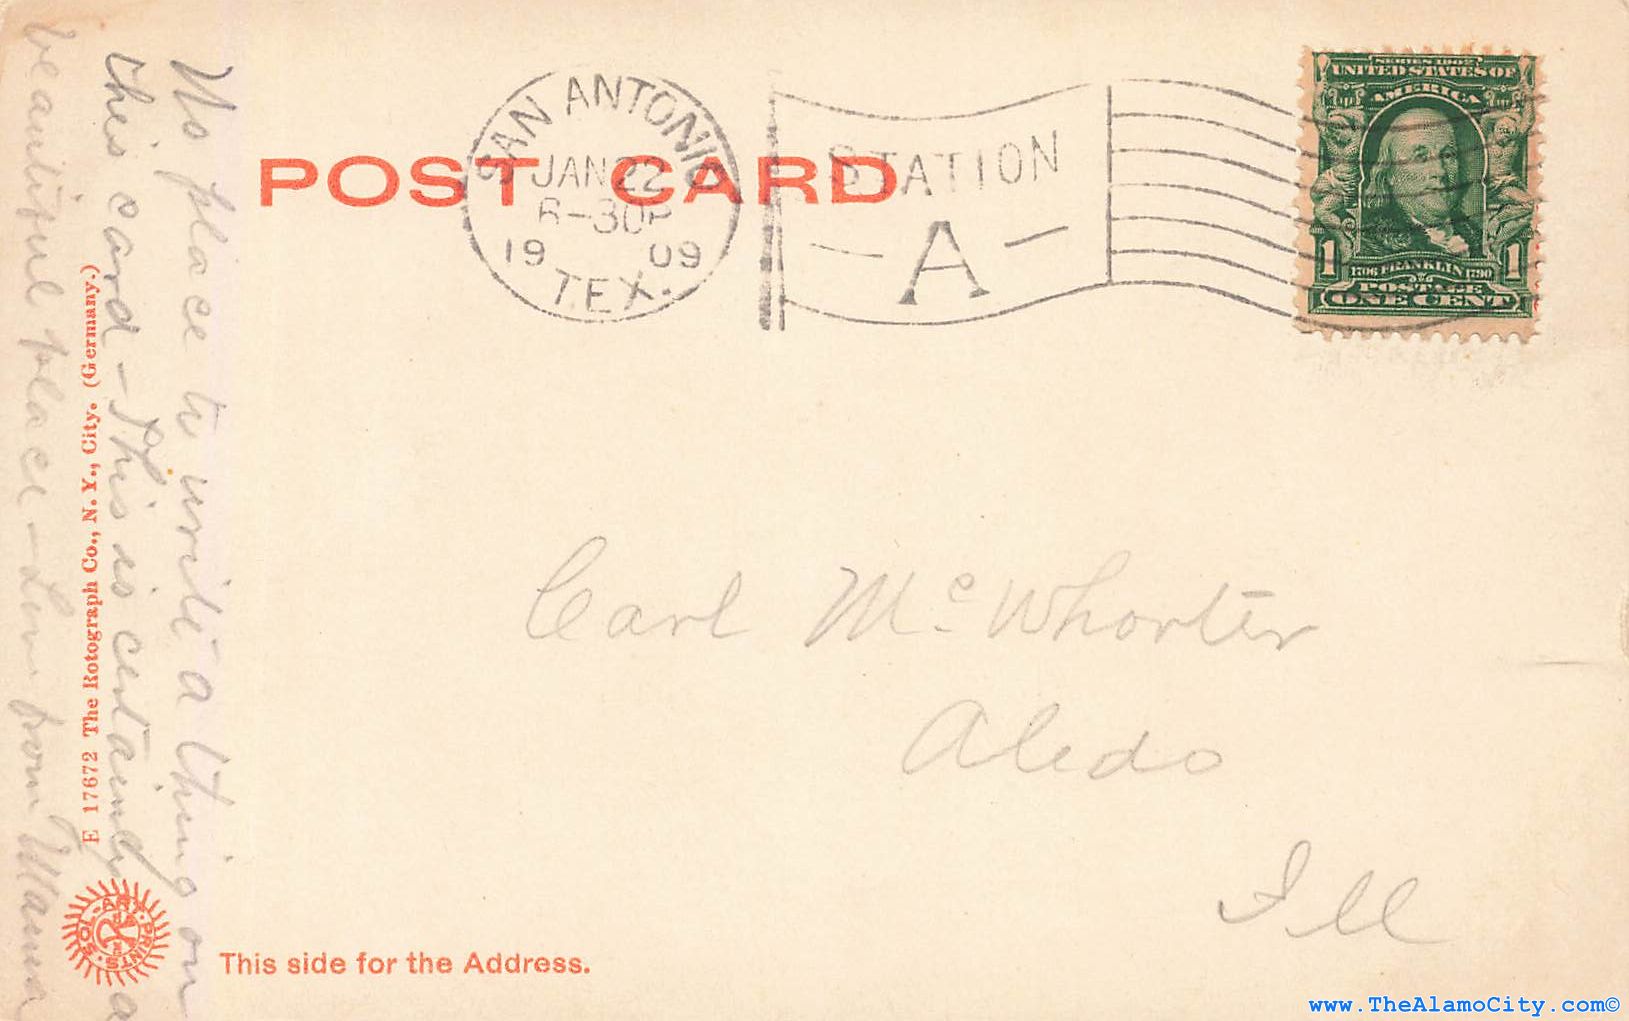 No place to write a thing on
this card - This is certainly a
beautiful place - Love from Mama
E 17672 The Rotograph Co., N. Y., City. (Germany.)
SOL-ART PRINTS
POST CARD
SAN ANTONIO
JAN 22
6-30P
1909
TEX.
STATION
A
SERIES 1902
UNITED STATES OF
AMERICA
1 1706 FRANKLIN 1790 1
POSTAGE
ONE CENT
Carl McWhorter
Aledo
Ill
This side for the Address.
www.TheAlamoCity.com©